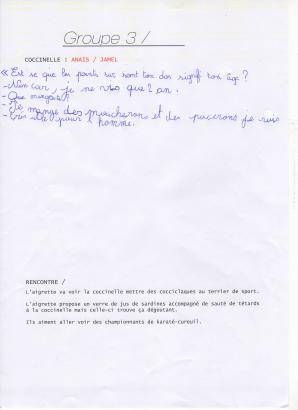 Groupe 3 /
COCCINELLE : ANAIS / JAMEL
« Est se que les points sur sont ton dos signif ton âge ?
- Non car, je ne vis que 1 an.
- Que manges-t
- Je mange des moucherons et des pucerons je suis
très utile pour l'homme.
RENCONTRE /
L'aigrette va voir la coccinelle mettre des cocciclaques au terrier de sport.
L'aigrette propose un verre de jus de sardines accompagné de sauté de têtards
à la coccinelle mais celle-ci trouve ça dégoutant.
Ils aiment aller voir des championnants de karaté-cureuil.